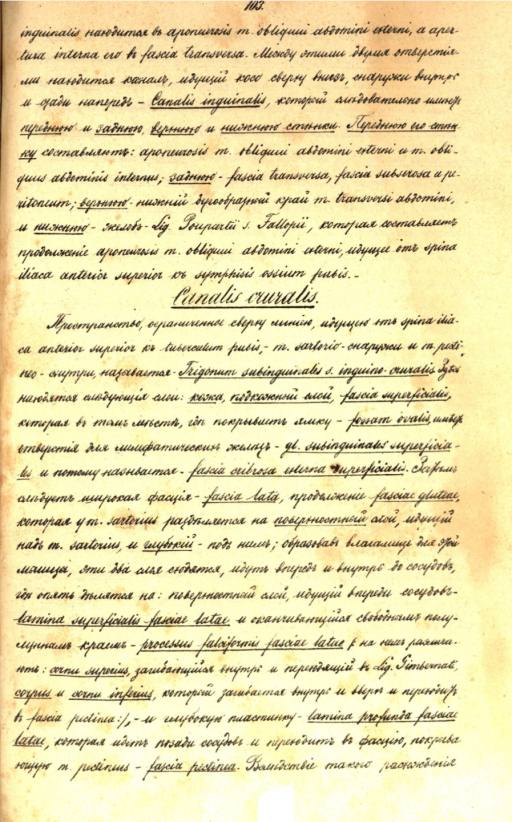 103.
inguinalis находится въ aponeurosis m. obliquii abdomini externi, а aper-
tura interna его въ fascia transversa. Между этими двумя отверстія-
ми находится каналъ, идущій косо сверху внизъ, снаружи внутрь
и сзади напередъ - Canalis inguinalis, которой слѣдовательно имѣетъ
переднюю и заднюю, верхнюю и нижнюю стѣнки. Переднюю его стѣн-
ку составляютъ: aponeurosis m. obliquii abdomini externi и m. obli-
quus abdominis internus; заднюю - fascia transversa, fascia subserosa и pe-
ritoneum; верхнюю - нижній дугообразной край m. transversi abdomini,
и нижнюю - желобъ Lig. Poupartii s. Fallopii, которая составляетъ
продолженіе aponeurosis m. obliquii abdomini externi, идущее отъ spina
iliaca anterior superior къ symphisis ossium pubis. -
Canalis cruralis.
Пространство, ограниченное сверху линіею, идущею отъ spina ilia-
ca anterior superior къ tuberculum pubis, - m. sartorio - снаружи и m. pecti-
neo - снутри, называется - Trigonum subinguinalis s. inguino-cruralis. Здѣсь
находятся слѣдующія слои: кожа, подкожный слой, fascia superficialis,
которая въ томъ мѣстѣ, гдѣ покрываетъ ямку - fossam ovalis, имѣетъ
отверстія для лимфатическихъ железъ - gl. subinguinales superficia-
les и потому называется - fascia cribrosa externa superficialis. Затѣмъ
слѣдуетъ широкая фасція - fascia lata, продолженіе fasciae gluteae,
которая у m. sartorius раздѣляется на поверхностной слой, идущій
надъ m. sartorius, и глубокій - подъ нимъ; образовавъ влагалище для этой
мышцы, эти два слоя сходятся, идутъ впередъ и внутрь до сосудовъ,
гдѣ опять дѣлятся на: поверхностной слой, идущій впереди сосудовъ -
lamina superficialis fasciae latae и оканчивающійся свободнымъ полу-
луннымъ краемъ - processus falciformis fasciae latae (: на немъ различа-
ютъ: cornu superius, загибающійся внутрь и переходящій въ Lig. Gimbernati,
corpus и cornu inferius, которой загибается внутрь и вверхъ и переходитъ
въ fascia pectinea:), - и глубокую пластинку - lamina profunda fasciae
latae, которая идетъ позади сосудовъ и переходитъ въ фасцію, покрыва-
ющую m. pectineus - fascia pectinea. Вслѣдствіе такого расхожденія